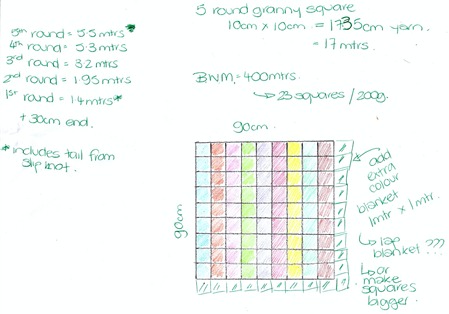 5th round = 5.5 mtrs *
4th round = 5.3 mtrs
3rd round = 3.2 mtrs
2nd round = 1.95 mtrs
1st round = 1.4 mtrs *
+ 30cm end.
* includes tail from
slip knot.
5 round granny square
10cm x 10cm = 1735cm yarn.
= 17 mtrs.
BWM = 400mtrs.
↳ 23 squares / 200g.
90cm
90cm
add
extra
colour
blanket
1mtr x 1mtr.
↳ lap
blanket ???
↳ or
make
squares
bigger.